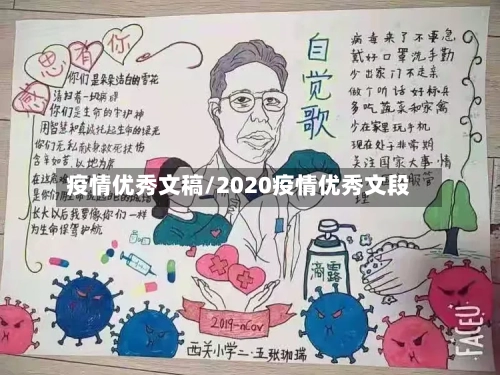 感恩有你
你们是朵朵洁白的雪花
清扫着一切病毒
你们是生命的守护神
用智慧和真诚托起生命的绿光
含辛如苦，以地为床
长大以后我要像你们一样
为生命保驾护航
自觉歌
病毒来了不要急
戴好口罩洗手勤
少出家门不走亲
做个听话好标兵
多吃蔬菜和家禽
少在家里玩手机
现在处于非常期
关注国家大事·情
疫情优秀文稿/2020疫情优秀文段
滴露
2019-nCoV
西关小学二·五张珈瑞
FACEU